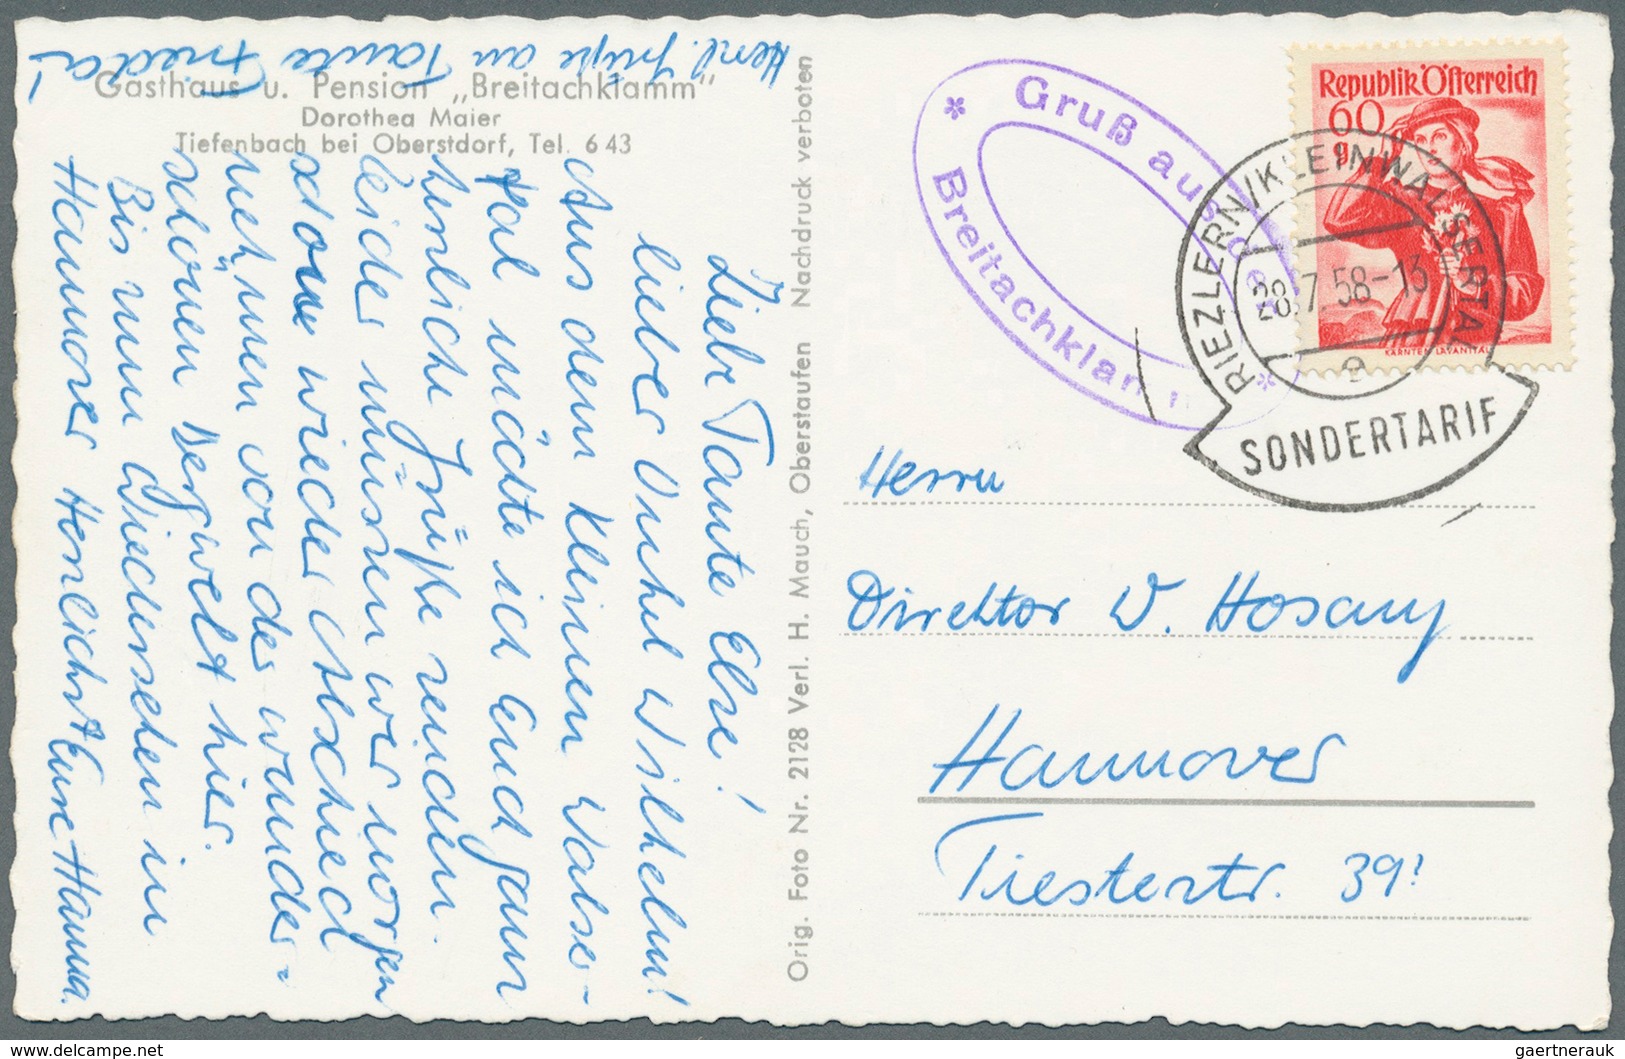 Gasthaus u. Pension „Breitachklamm"
Dorothea Maier
Tiefenbach bei Oberstdorf, Tel. 643
Liebe Tante Else!
lieber Onkel Wilhelm!
Aus dem Kleinen Walser-
tal möchte ich Euch ganz
herzliche Grüße senden.
Leider müssen wir morgen
schon wieder Abschied
nehmen von der wunder-
schönen Bergwelt hier.
Bis zum Wiedersehen in
Hannover Herzlichst Eure Hanna.
Herzl. Grüße an Tante Frieda!
Orig. Foto Nr. 2128 Verl. H. Mauch, Oberstaufen Nachdruck verboten
* Gruß aus der *
Breitachklamm
Republik Österreich
60
g
KÄRNTEN LAVANTTAL
RIEZLERN/KLEINWALSERTAL
28.7.58-13
e
SONDERTARIF
Herrn
Direktor W. Hosang
Hannover
Tiestestr. 39!
www.delcampe.net
gaertnerauk